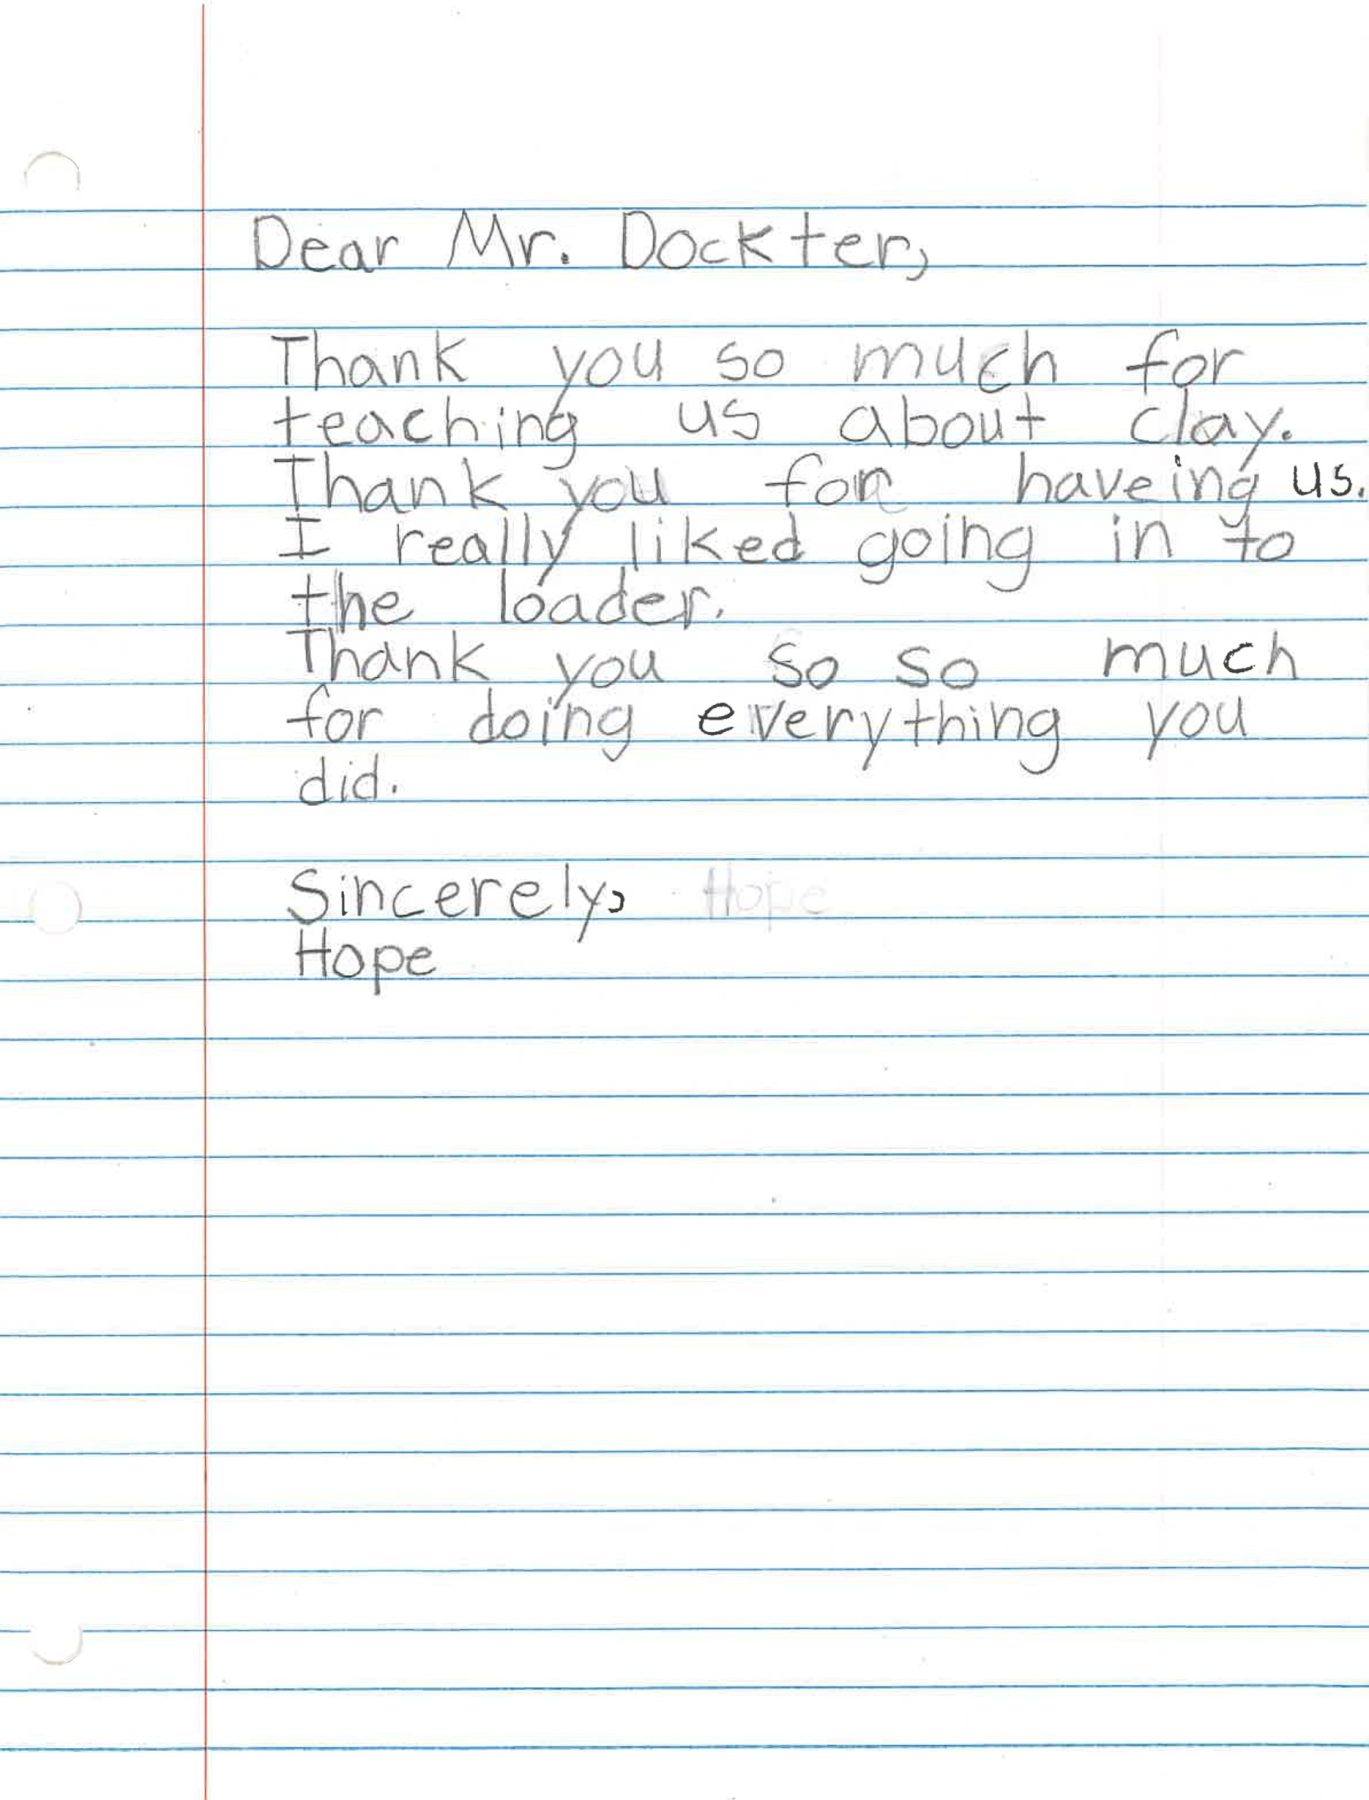 Dear Mr. Dockter,
Thank you so much for
teaching us about clay.
Thank you for haveing us.
I really liked going in to
the loader.
Thank you so so much
for doing everything you
did.
Sincerely, Hope
Hope